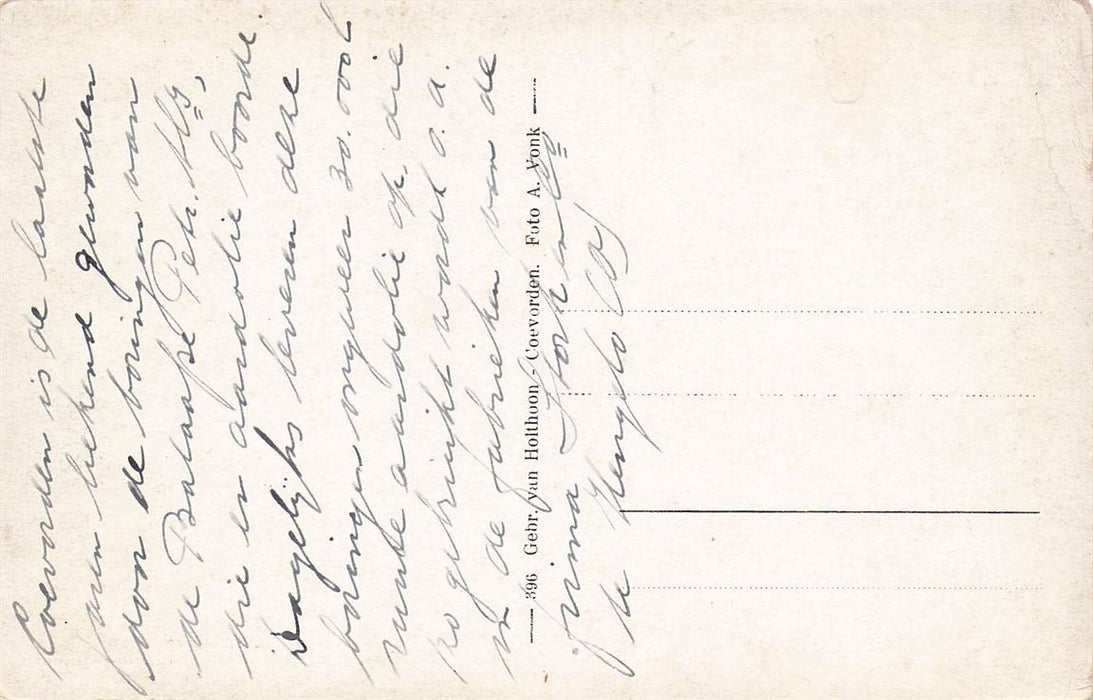 Coevorden is de laatste
jaren bekend geworden
door de boringen van
de Bataafse Petr. Mij,
die er aardolie boorde.
Dagelijks leveren deze
boringen ongeveer 30.000 l
ruwe aardolie op, die
o.a.
in de fabrieken van de
firma Stork en Co
te Hengelo (O)
— 396 Gebr. van Holthoon - Coevorden. Foto A. Vonk —